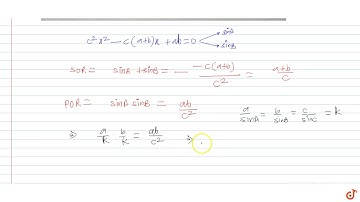 c²x² - c(a+b)x + ab = 0 sinA
sinB
SOR = sinA + sinB = - -c(a+b)/c² = a+b/c
POR = sinA sinB = ab/c²
a/sinA = b/sinB = c/sinC = k
⇒ a/k b/k = ab/c² ⇒